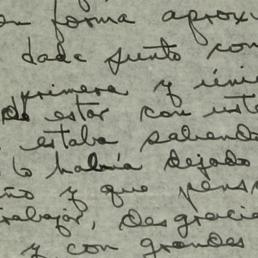 en forma aproxi
dada junto con
primera y úni
de estar con uste
estaba sabiendo
lo había dejado
ño y que pens
rabajar, desgracia
y con grandes